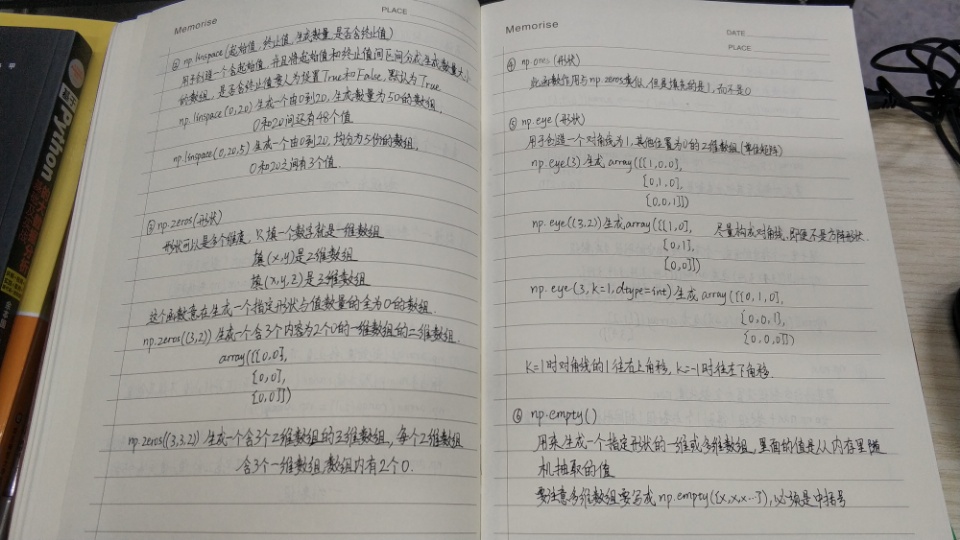 Memorise
PLACE
② np.linspace(起始值,终止值,生成数量,是否含终止值)
用于创建一个含起始值,并且将起始值和终止值间区间分成生成数量大小
的数组,是否含终止值要人为设置True和False,默认为True
np.linspace(0,20)生成一个由0到20,生成数量为50的数组,
0和20间还有48个值
np.linspace(0,20,5)生成一个由0到20,均分为5份的数组,
0和20之间有3个值.
③ np.zeros(形状)
形状可以是多个维度,只填一个数字就是一维数组
填(x,y)是2维数组
填(x,y,z)是三维数组
这个函数意在生成一个指定形状与值数量的全为0的数组.
np.zeros((3,2))生成一个含3个内容为2个0的一维数组的二维数组.
array([[0,0],
[0,0],
[0,0]])
np.zeros((3,3,2))生成一个含3个2维数组的三维数组,每个2维数组
含3个一维数组,数组内有2个0.
Memorise
DATE
PLACE
④ np.ones(形状)
此函数作用与np.zeros类似,但是填充的是1,而不是0
⑤ np.eye(形状)
用于创建一个对角线为1,其他位置为0的2维数组(单位矩阵)
np.eye(3)生成array([[1,0,0],
[0,1,0],
[0,0,1]])
np.eye((3,2))生成array([[1,0], 尽量构成对角线,即便不是方阵形状.
[0,1],
[0,0]])
np.eye(3,k=1,dtype=int)生成array([[0,1,0],
[0,0,1],
[0,0,0]])
k=1时对角线的1往右上角移,k=-1时往左下角移.
⑥ np.empty()
用来生成一个指定形状的一维或多维数组,里面的值是从内存里随
机抽取的值
要注意多维数组要写成np.empty([x,x,x…]),必须是中括号
Python